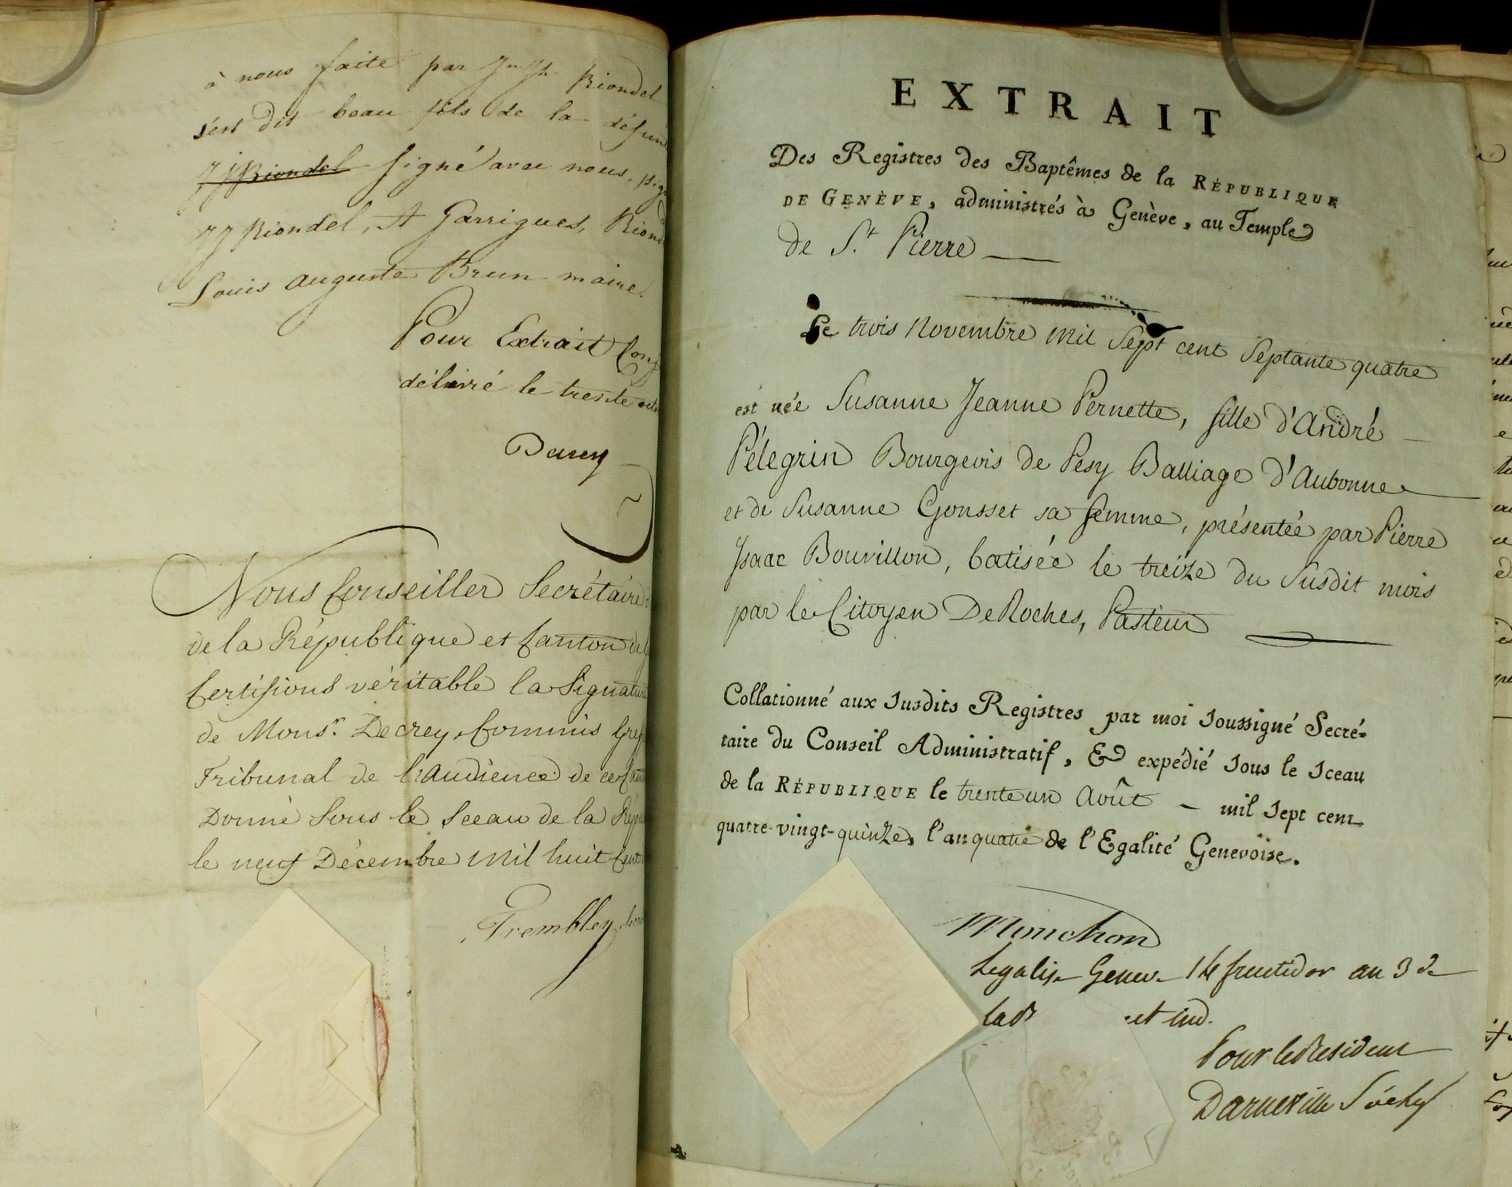 à nous faite par Jph Riondel
s'est dit beau fils de la défun
JJ Riondel signé avec nous,
JJ Riondel, A Garrigues, Riond
Louis auguste Brun maire.
Pour Extrait Conf
délivré le trente
Decrey
Nous Conseiller Secrétaire
de la République et Canton de
Certifions véritable la Signature
de Monsr. Decrey, Commis Gref
Tribunal de l'audience de ce Canton
Donné sous le sceau de la Répu
le neuf Décembre mil huit Cent
Trembley
EXTRAIT
Des Registres des Baptêmes de la RÉPUBLIQUE
DE GENÈVE, administrés à Genève, au Temple
de St. Pierre
Le trois Novembre mil Sept cent Septante quatre
est née Susanne Jeanne Pernette, fille d'André
Pélegrin Bourgeois de Pesy Balliage d'Aubonne
et de Susanne Gonsset sa femme, présentée par Pierre
Isaac Bouvillon, batisée le treize du Susdit mois
par le Citoyen DeRoches, Pasteur
Collationné aux susdits Registres par moi soussigné Secré-
taire du Conseil Administratif, & expédié sous le sceau
de la RÉPUBLIQUE le trente un Août mil sept cent
quatre-vingt-quinze, l'an quatre de l'Egalité Genevoise.
Mouchon
Legalisé Geneve 14 fructidor an 3 de
la R et ind.
Pour le Resident
Darneville